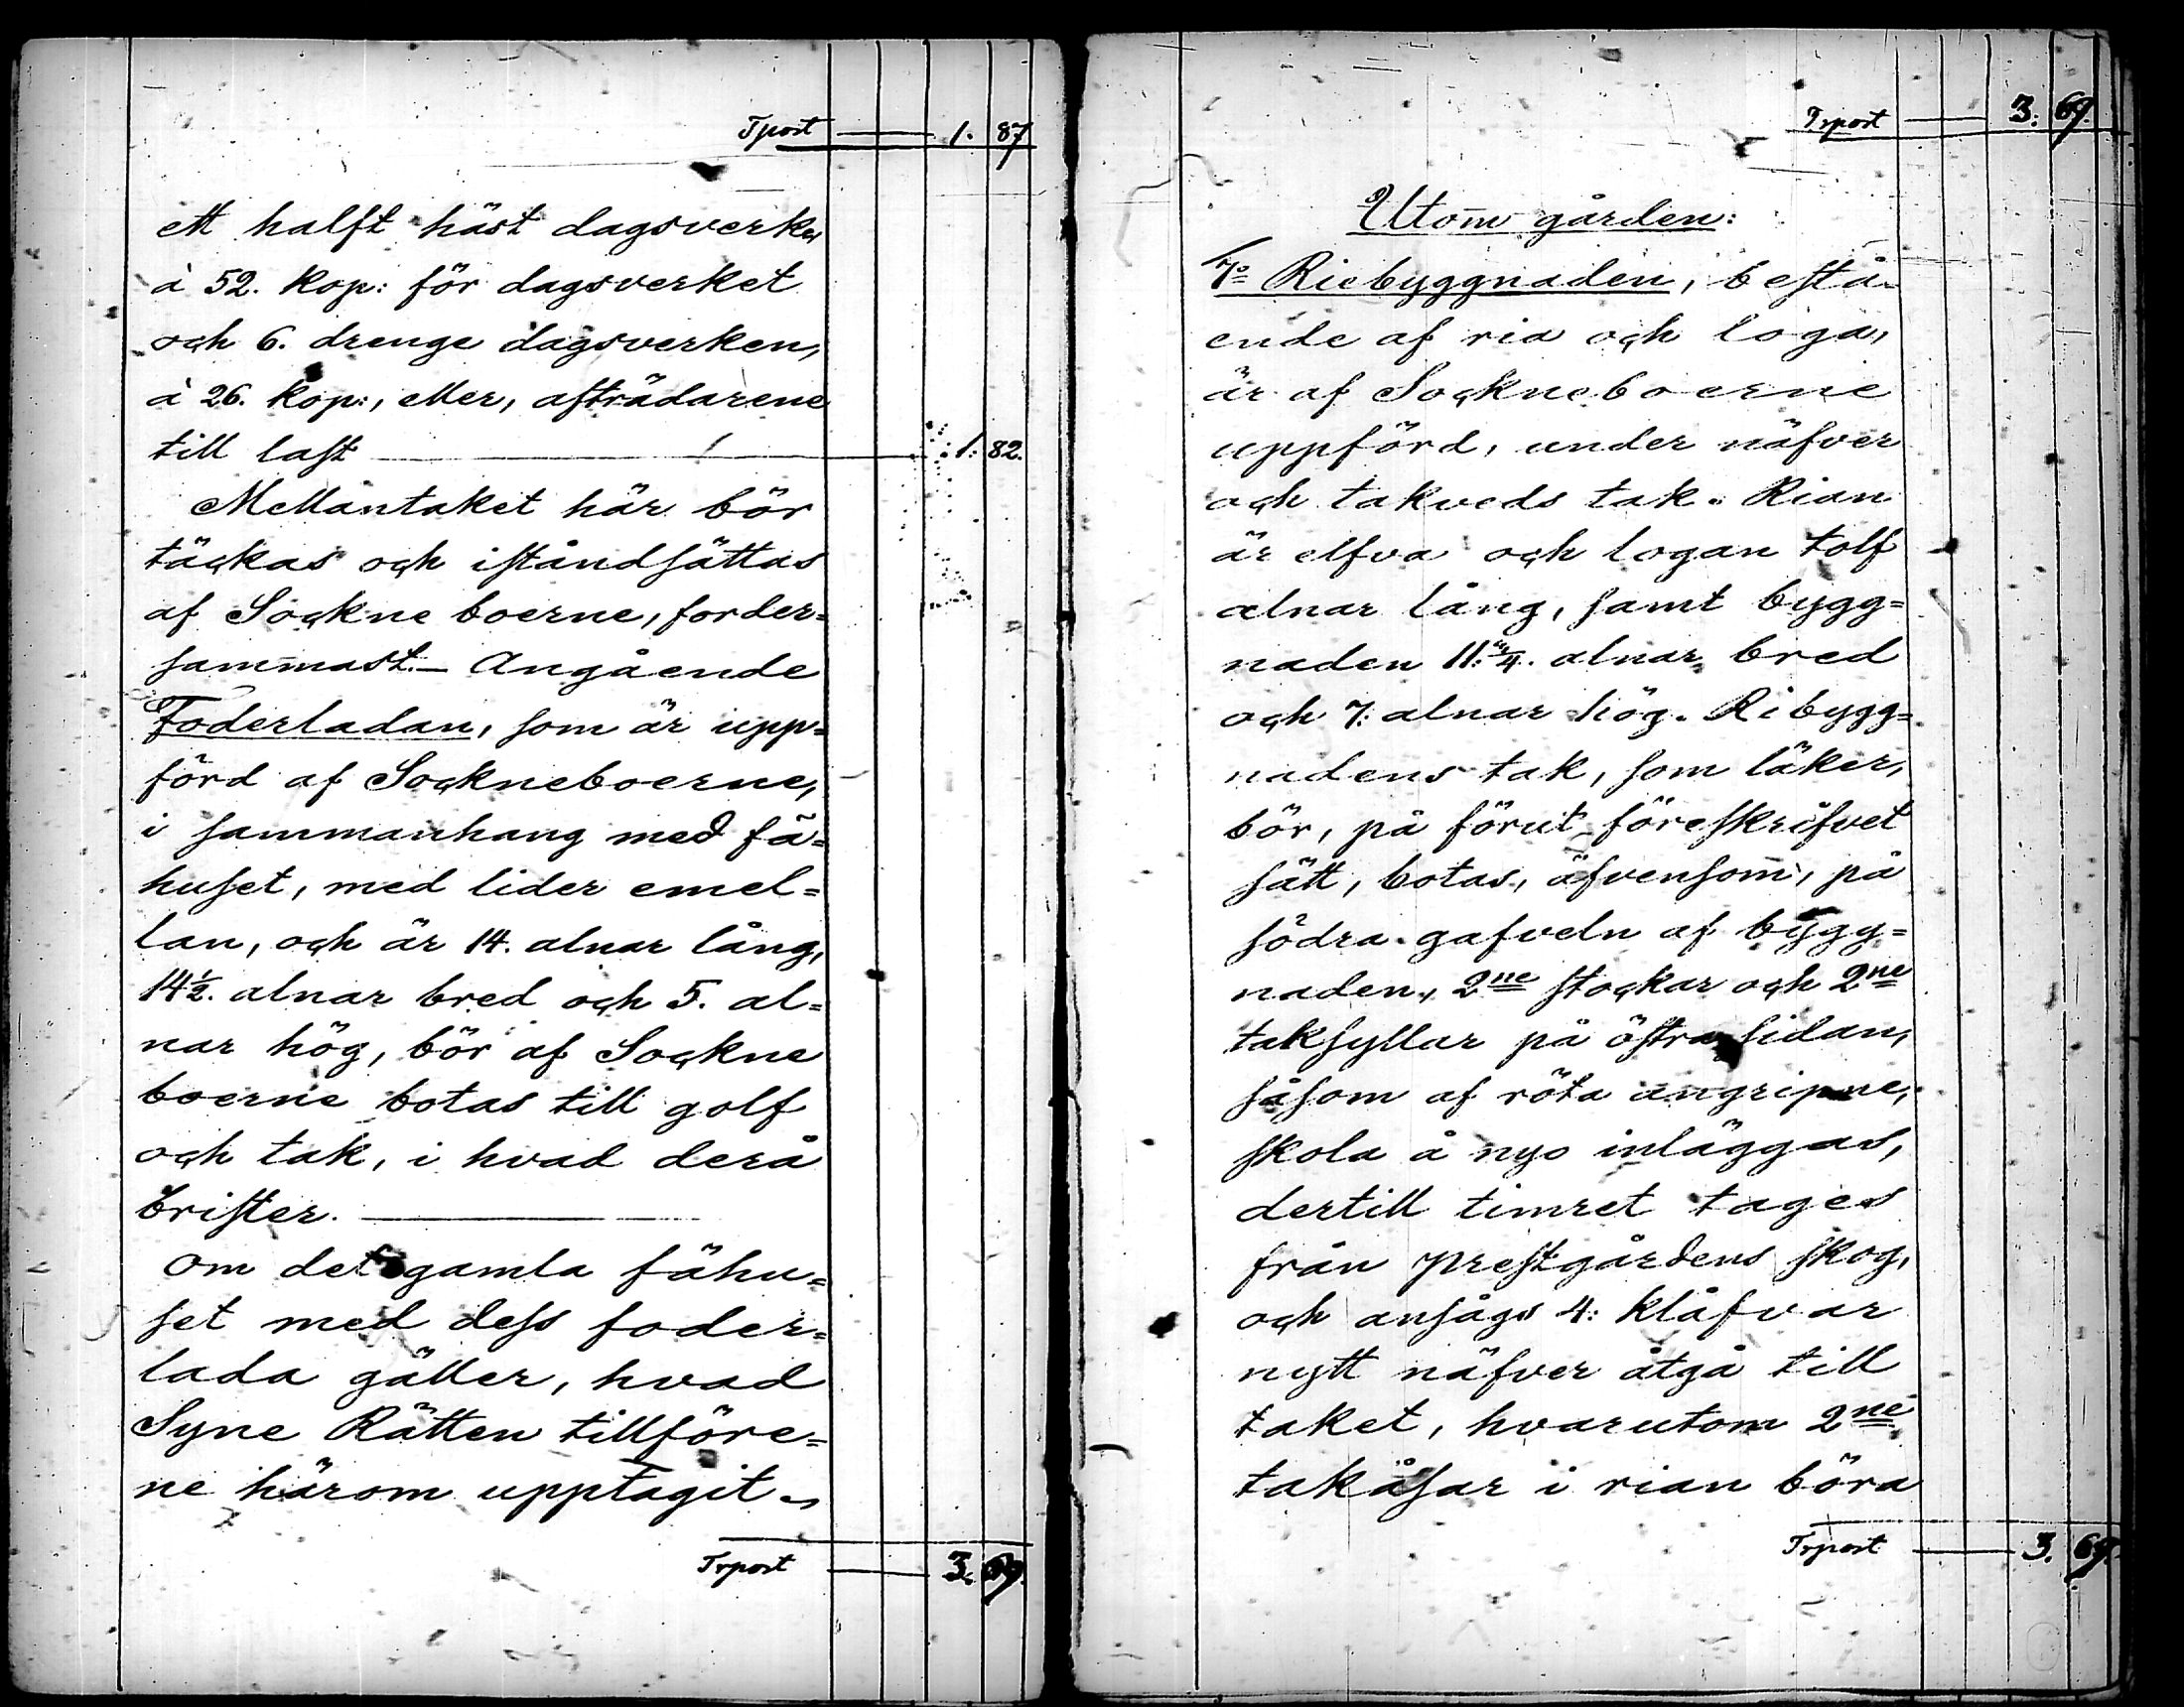 Tpost 1. 87
ett halft häst dagsverke,
à 52. kop: för dagsverket
och 6. drenge dagsverken,
à 26. kop:, eller, afträdarene
till last 1. 82.
Mellantaket här bör
täckas och iståndsättas
af Sockne boerne, forder=
sammast. — Angående
Foderladan, som är upp=
förd af Sockneboerne,
i sammanhang med fä=
huset, med lider emel=
lan, och är 14. alnar lång,
14½. alnar bred och 5. al=
nar hög, bör af Sockne
boerne botas till golf
och tak, i hvad derå
brister.
Om det gamla fähu=
set med dess foder=
lada gäller, hvad
Syne Rätten tillföre=
ne härom upptagit.
Trpost 3. 69.
Trpost 3. 69.
Utom gården:
7o Riebyggnaden, bestå-
ende af ria och loga,
är af Sockneboerne
uppförd, under näfver
och takveds tak. Rian
är elfva och logan tolf
alnar lång, samt bygg=
naden 11: alnar bred
och 7: alnar hög. Ribygg=
nadens tak, som läker,
bör, på förut föreskrifvet
sätt, botas, äfvensom, på
södra gafveln af bygg=
naden, 2ne stockar och 2ne
taksyllar på östra sidan,
såsom af röta angripne,
skola å nyo inläggas,
dertill timret tages
från prestgårdens skog,
och ansågs 4: kläfvar
nytt näfver åtgå till
taket, hvarutom 2ne
takåsar i rian böra
Trpost 3. 69.